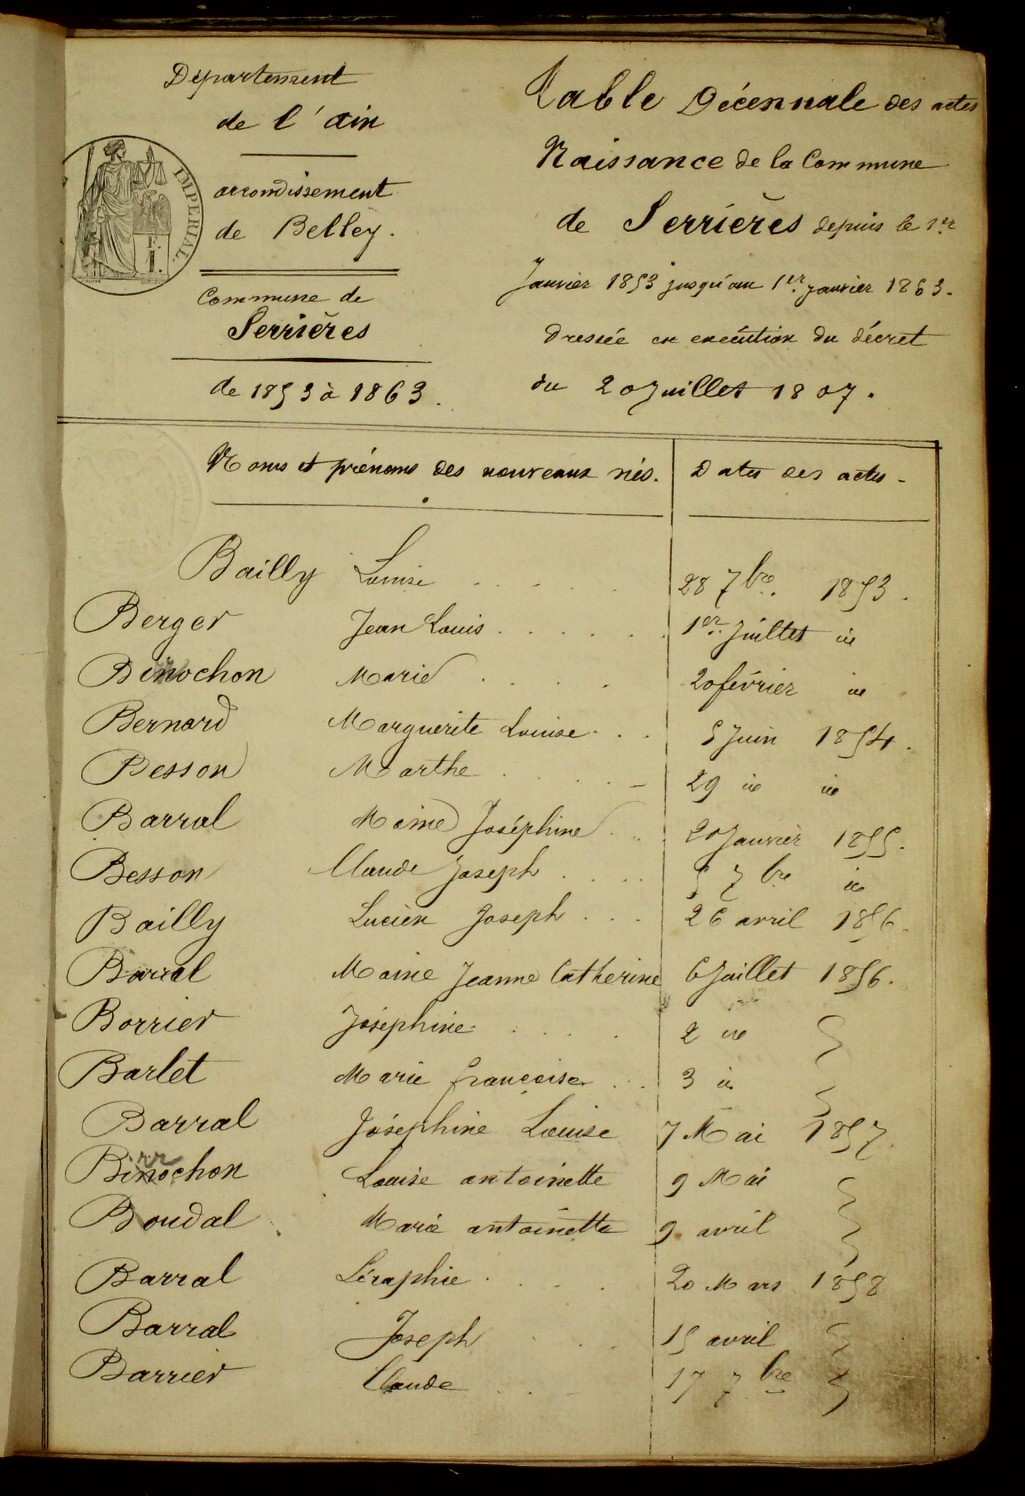 Département
de l'ain
arrondissement
de Belley.
IMPERIAL.
Commune de
Serrières
de 1853 à 1863.
Table Décennale des actes
Naissance de la Commune
de Serrières depuis le 1er
Janvier 1853 jusqu'au 1er. janvier 1863.
Dressée en execution du décret
du 20 Juillet 1807.
Noms et prénoms des nouveaux nés. Dates des actes -
Bailly Louise 28 7bre. 1853.
Berger Jean Louis 1er. Juillet id
Binochon Marie 20 février id
Bernard Marguerite Louise 5 Juin 1854.
Besson Marthe 29 id id
Barral Marie Joséphine 20 Janvier 1855.
Besson Claude Joseph 5 7bre id
Bailly Lucien Joseph 26 avril 1856.
Barral Marie Jeanne Catherine 6 Juillet 1856.
Borrier Joséphine 2 id
Barlet Marie françoise 3 id
Barral Joséphine Louise 7 Mai 1857.
Binochon Louise antoinette 9 Mai
Boudal Marie antoinette 9 avril
Barral Séraphie 20 Mars 1858
Barral Joseph 15 avril
Barrier Claude 17 7bre